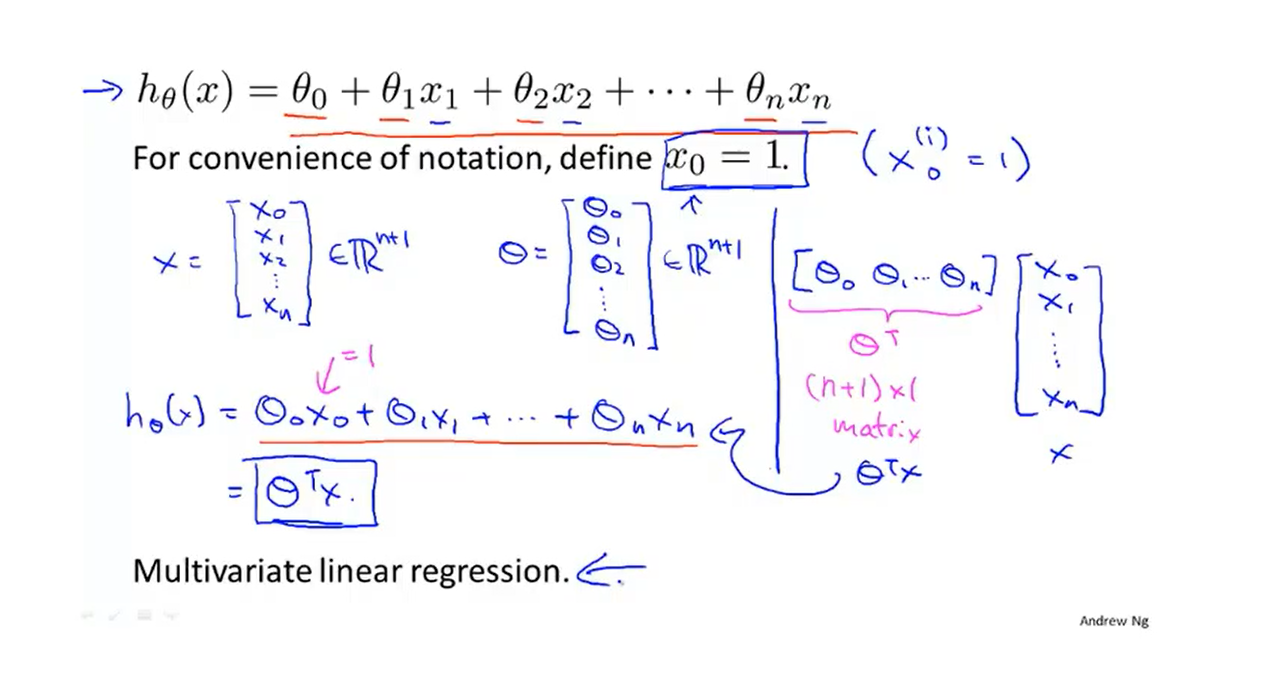 → h_θ(x) = θ_0 + θ_1x_1 + θ_2x_2 + ··· + θ_nx_n
For convenience of notation, define x_0 = 1. (x_0^(i) = 1)
x = [x_0 x_1 x_2 ⋮ x_n] ∈ ℝ^(n+1) θ = [θ_0 θ_1 θ_2 ⋮ θ_n] ∈ ℝ^(n+1)
[θ_0 θ_1 ··· θ_n] [x_0 x_1 ⋮ x_n]
θ^T
(n+1)×1
matrix
θ^T x x
= 1
h_θ(x) = θ_0x_0 + θ_1x_1 + ··· + θ_nx_n
= θ^T x.
Multivariate linear regression. ←
Andrew Ng